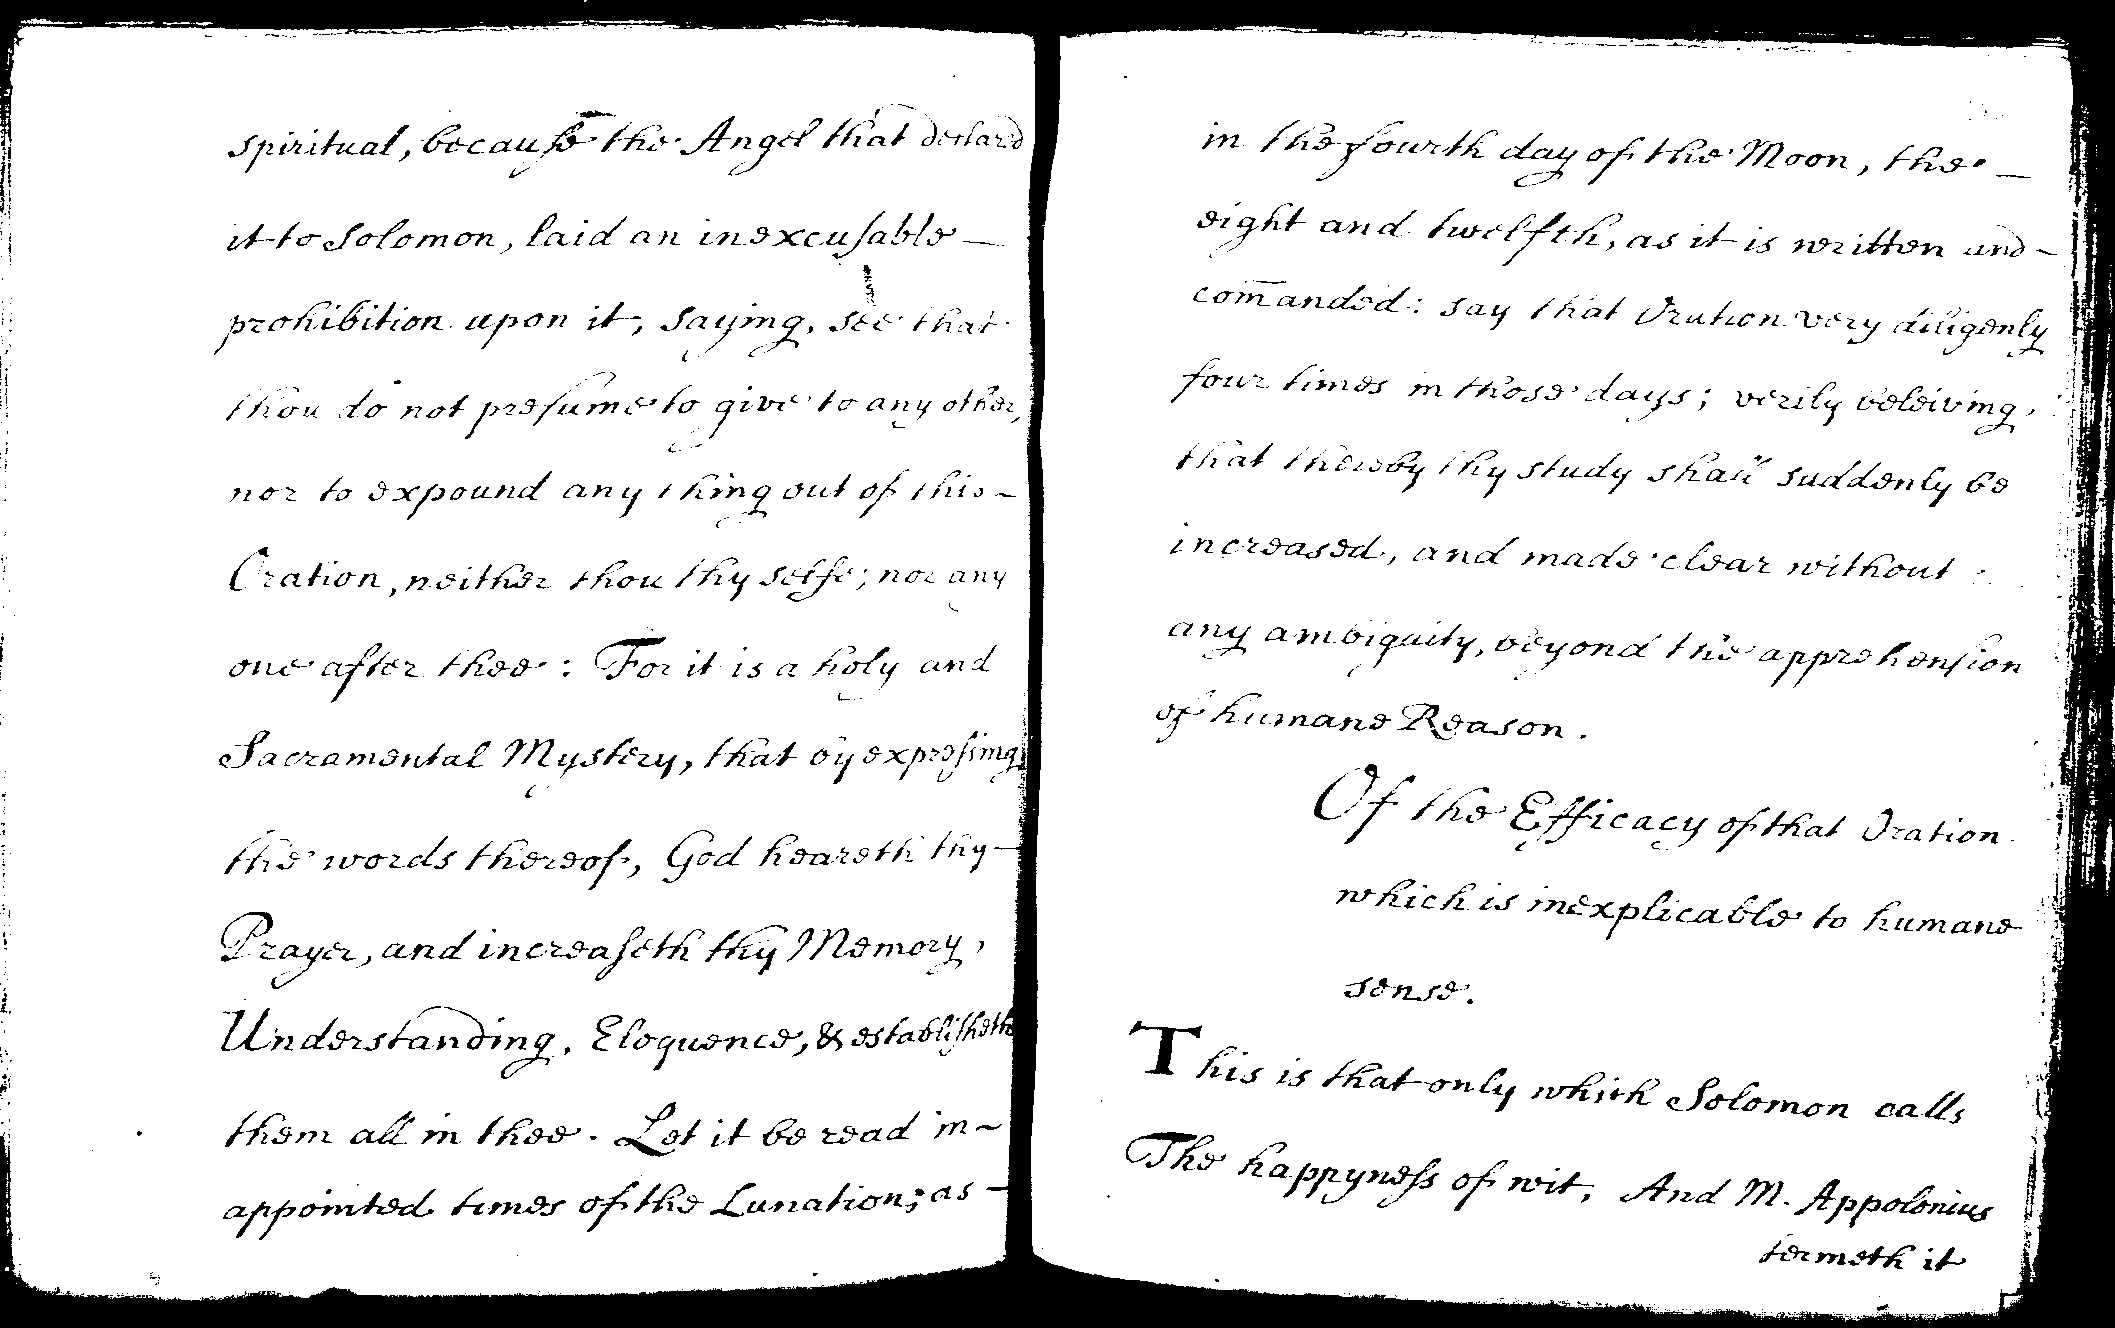 spiritual, because the Angel that declard
it to Solomon, laid an inexcusable —
prohibition upon it, saying, see that
thou do not presume to give to any other,
nor to expound any thing out of this –
Oration, neither thou thy selfe; nor any
one after thee : For it is a holy and
Sacramental Mystery, that by expressing
the words thereof, God heareth thy –
Prayer, and increaseth thy Memory,
Understanding, Eloquence, & establisheth
them all in thee. Let it be read in ~
appointed times of the Lunation; as –
in the fourth day of the Moon, the –
eight and twelfth, as it is written and –
com̄anded: say that Oration very diligenly
four times in those days; verily beleiving,
that thereby thy study shall suddenly be
increased, and made clear without
any ambiguity, beyond the apprehension
of humane Reason.
Of the Efficacy of that Oration
which is inexplicable to humane
sense.
This is that only which Solomon calls
The happyness of wit, And M. Appolonius
termeth it